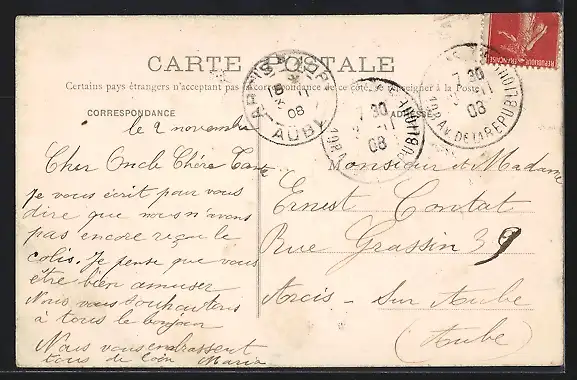 CARTE POSTALE
Certains pays étrangers n'acceptant pas la correspondance de ce côté, se renseigner à la Poste
CORRESPONDANCE
ADRESSE
le 2 novembre
Cher Oncle Chère Tante
Je vous écrit pour vous
dire que nous n'avons
pas encore reçu le
colis. Je pense que vous
être bien amuser
Nous vous souhaitons
à tous le bonjour
Nous vous embrassent
tous de loin Maria
Monsieur et Madame
Ernest Contat
Rue Grassin 39
Arcis - Sur Aube
(Aube)
ARCIS-S-AUBE
AUBE
11
08
7 30
11
08
AV. DE LA REPUBLIQUE
7 30
11
08
AV. DE LA REPUBLIQUE